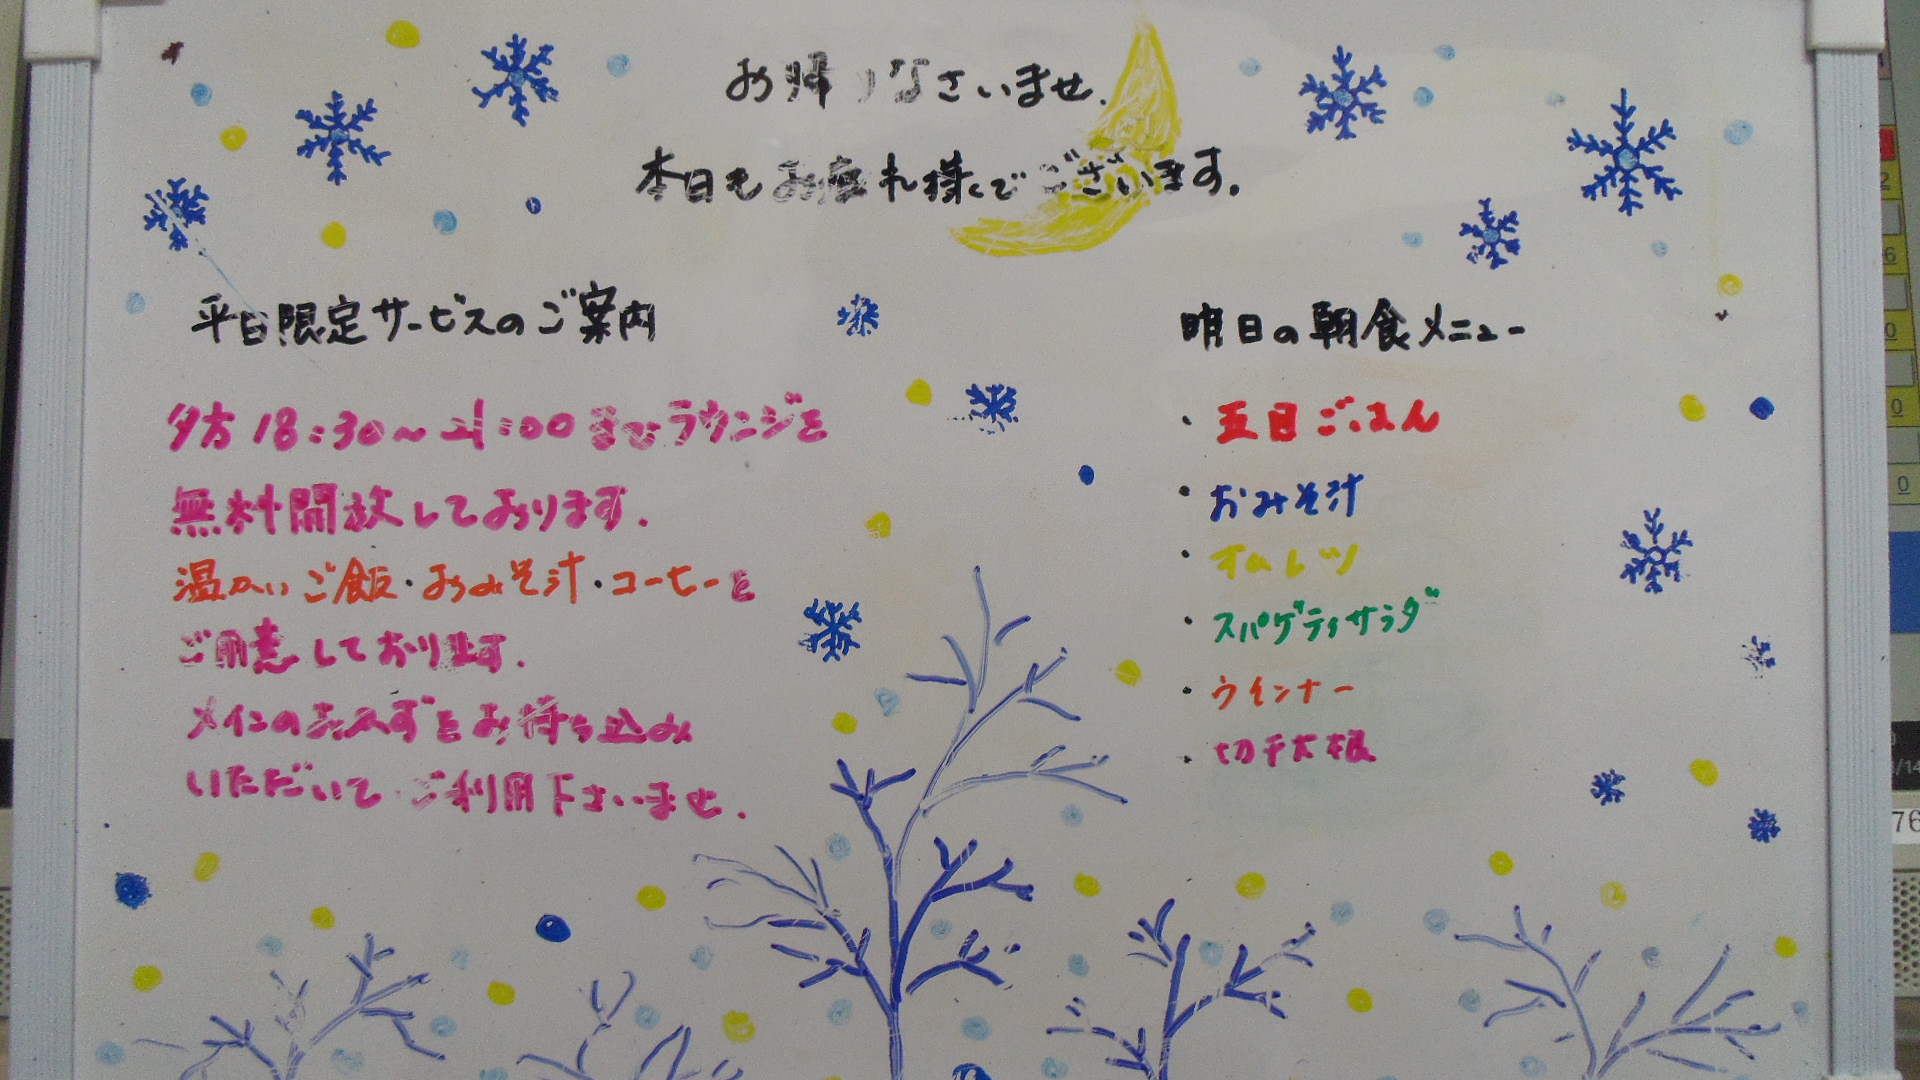 お帰りなさいませ.
本日もお疲れ様でございます.
平日限定サービスのご案内
夕方 18:30～21:00までラウンジを
無料開放しております.
温かいご飯・おみそ汁・コーヒーを
ご用意しております.
メインのおかずをお持ち込み
いただいてご利用下さいませ.
明日の朝食メニュー
・五目ごはん
・おみそ汁
・オムレツ
・スパゲティサラダ
・ウインナー
・切干大根